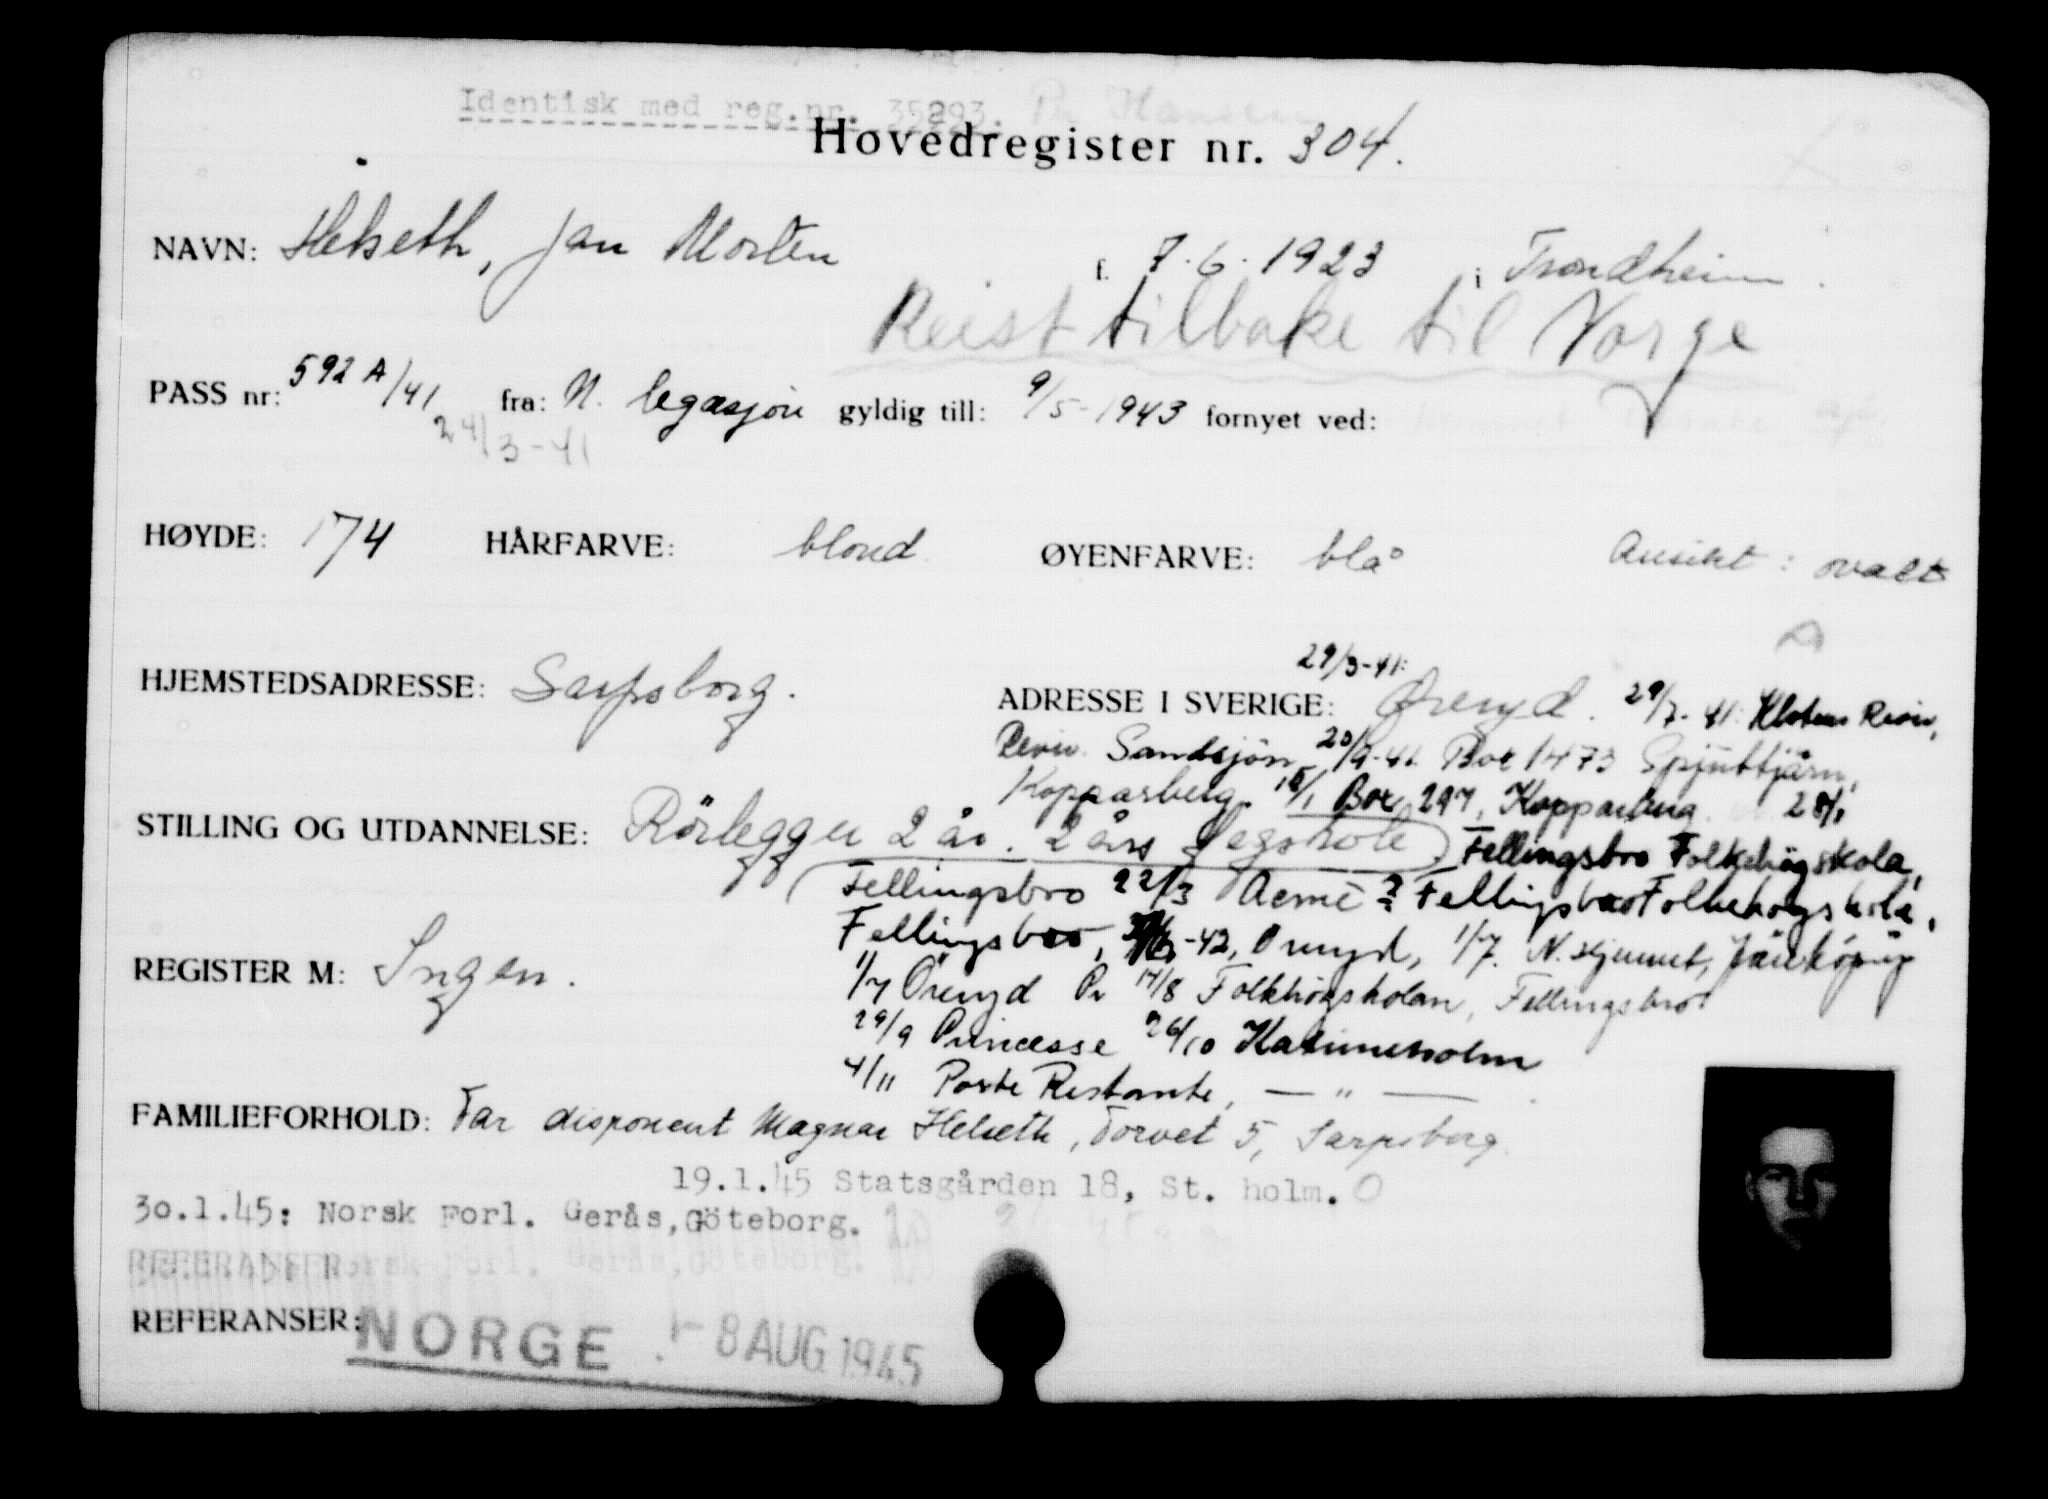 Identisk med reg.nr. 35293. Per Hansen
Hovedregister nr. 304.
NAVN: Helseth, Jan Morten f. 7.6.1923 i Trondheim.
Reist tilbake til Norge
PASS nr: 592 A/41 fra: N. legasjon gyldig till: 9/5-1943 fornyet ved:
24/3-41
HØYDE: 174 HÅRFARVE: blond ØYENFARVE: blå Ansikt: ovalt
29/3-41:
HJEMSTEDSADRESSE: Sarpsborg. ADRESSE I SVERIGE: Öreryd. 29/7-41:
Sandsjön 20/9-41 Box 1473
Kopparberg. Box 297, Kopparberg 28/1
STILLING OG UTDANNELSE: Rörlegger 2 år. 2 års fagskole Fellingsbro Folkehögskola,
Fellingsbro 22/3 Acme ? Fellingsbro Folkehögskola,
Fellingsbro, -42, Öreryd, 1/7. N. hjemmet, Jönköping
REGISTER M: Ingen.
1/7 Öreryd Pr 17/8 Folkhögskolan, Fellingsbro
29/9 Princesse 26/10 Katrineholm
4/11 Poste Restante, — " —
FAMILIEFORHOLD: Far disponent Magnar Helseth, Torvet 5, Sarpsborg.
19.1.45 Statsgården 18, St. holm. O
30.1.45: Norsk Forl. Gerås, Göteborg.
REFERANSER:
NORGE - 8 AUG 1945